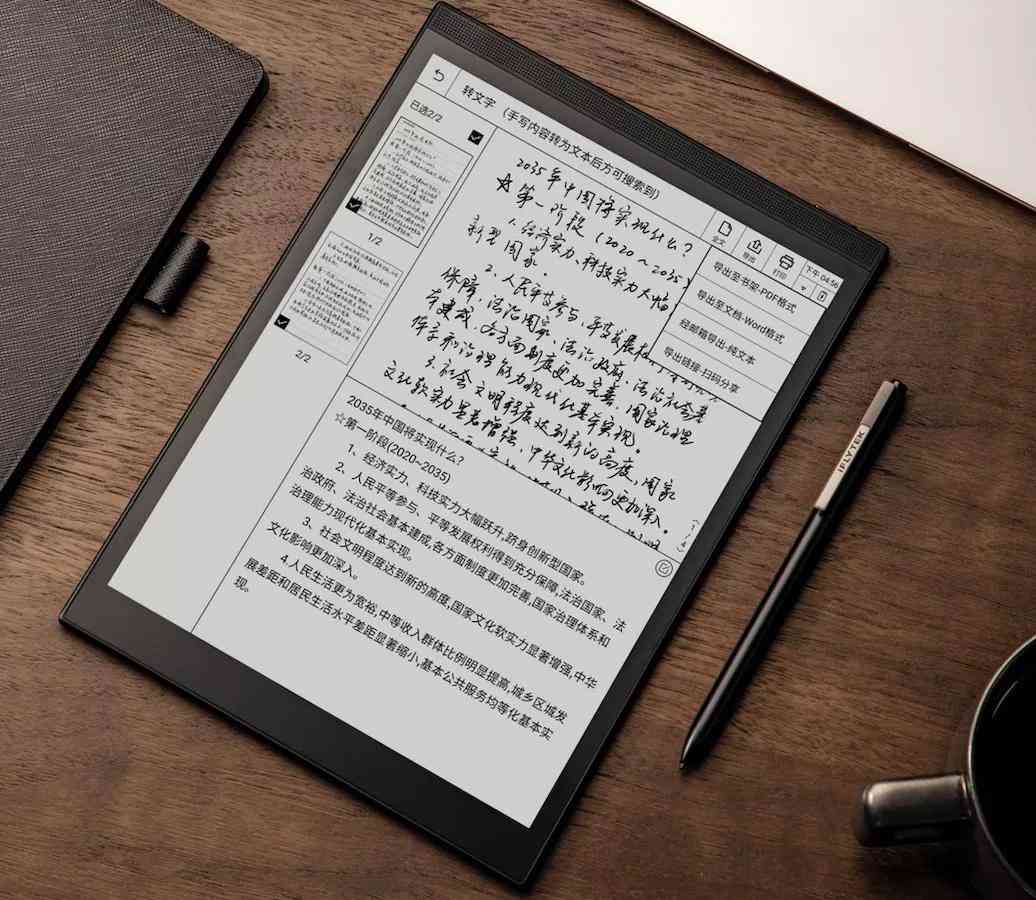 转文字 (手写内容转为文本后方可搜索到)
已选2/2
1/2
2/2
全文
导出
打印
下午 04:56
导出至书架-PDF格式
导出至文档-Word格式
经邮箱导出-纯文本
导出链接-扫码分享
2035年中国将实现什么?
☆第一阶段(2020~2035)
1.经济实力、科技实力大幅
新型国家.
2.人民平等参与、平等发展权
保障,法治国家、法治政府、法治社会基
本建成、各方面制度更加完善,国家治理
体系和治理能力现代化基本实现。
3.社会文明程度达到新的高度,国家
文化软实力显著增强,中华文化影响更加深入.
2035年中国将实现什么?
☆第一阶段(2020~2035)
1、经济实力、科技实力大幅跃升,跻身创新型国家。
2、人民平等参与、平等发展权利得到充分保障,法治国家、法
治政府、法治社会基本建成,各方面制度更加完善,国家治理体系和
治理能力现代化基本实现。
3、社会文明程度达到新的高度,国家文化软实力显著增强,中华
文化影响更加深入。
4.人民生活更为宽裕,中等收入群体比例明显提高,城乡区城发
展差距和居民生活水平差距显著缩小,基本公共服务均等化基本实
现。
IFLYTEK